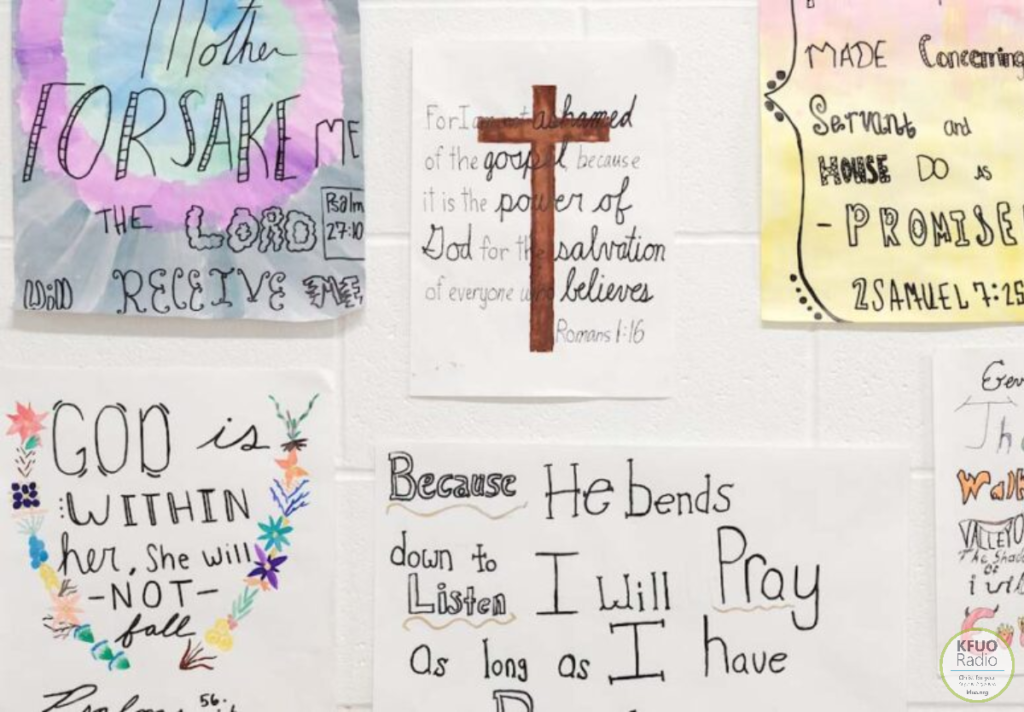 Mother
FORSAKE ME
THE LORD
Psalm
27:10
Will RECEIVE ME
For I am not ashamed
of the gospel, because
it is the power of
God for the salvation
of everyone who believes
Romans 1:16
MADE Concerning
Servant and
HOUSE DO AS
-PROMISE
2 SAMUEL 7:25
GOD is
WITHIN
her, She will
-NOT-
fall
56:
Because He bends
down to
Listen I Will Pray
as long as I have
Walk
VALLEY
The Shad
OF
i will
KFUO
Radio
kfuo.org